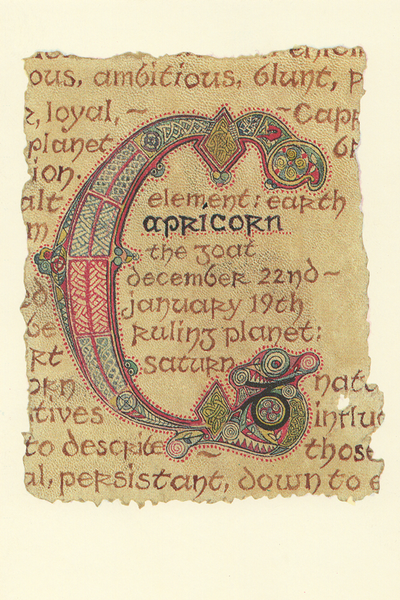 ous, ambitious, blunt, p
r, loyal, ~ ~Capr
planet
ion.
alt element: earth
m Capricorn
the goat
december 22nd~
january 19th
be ruling planet:
rt saturn
orn natu
tives influ
to describe ~ those
al, persistant, down to e